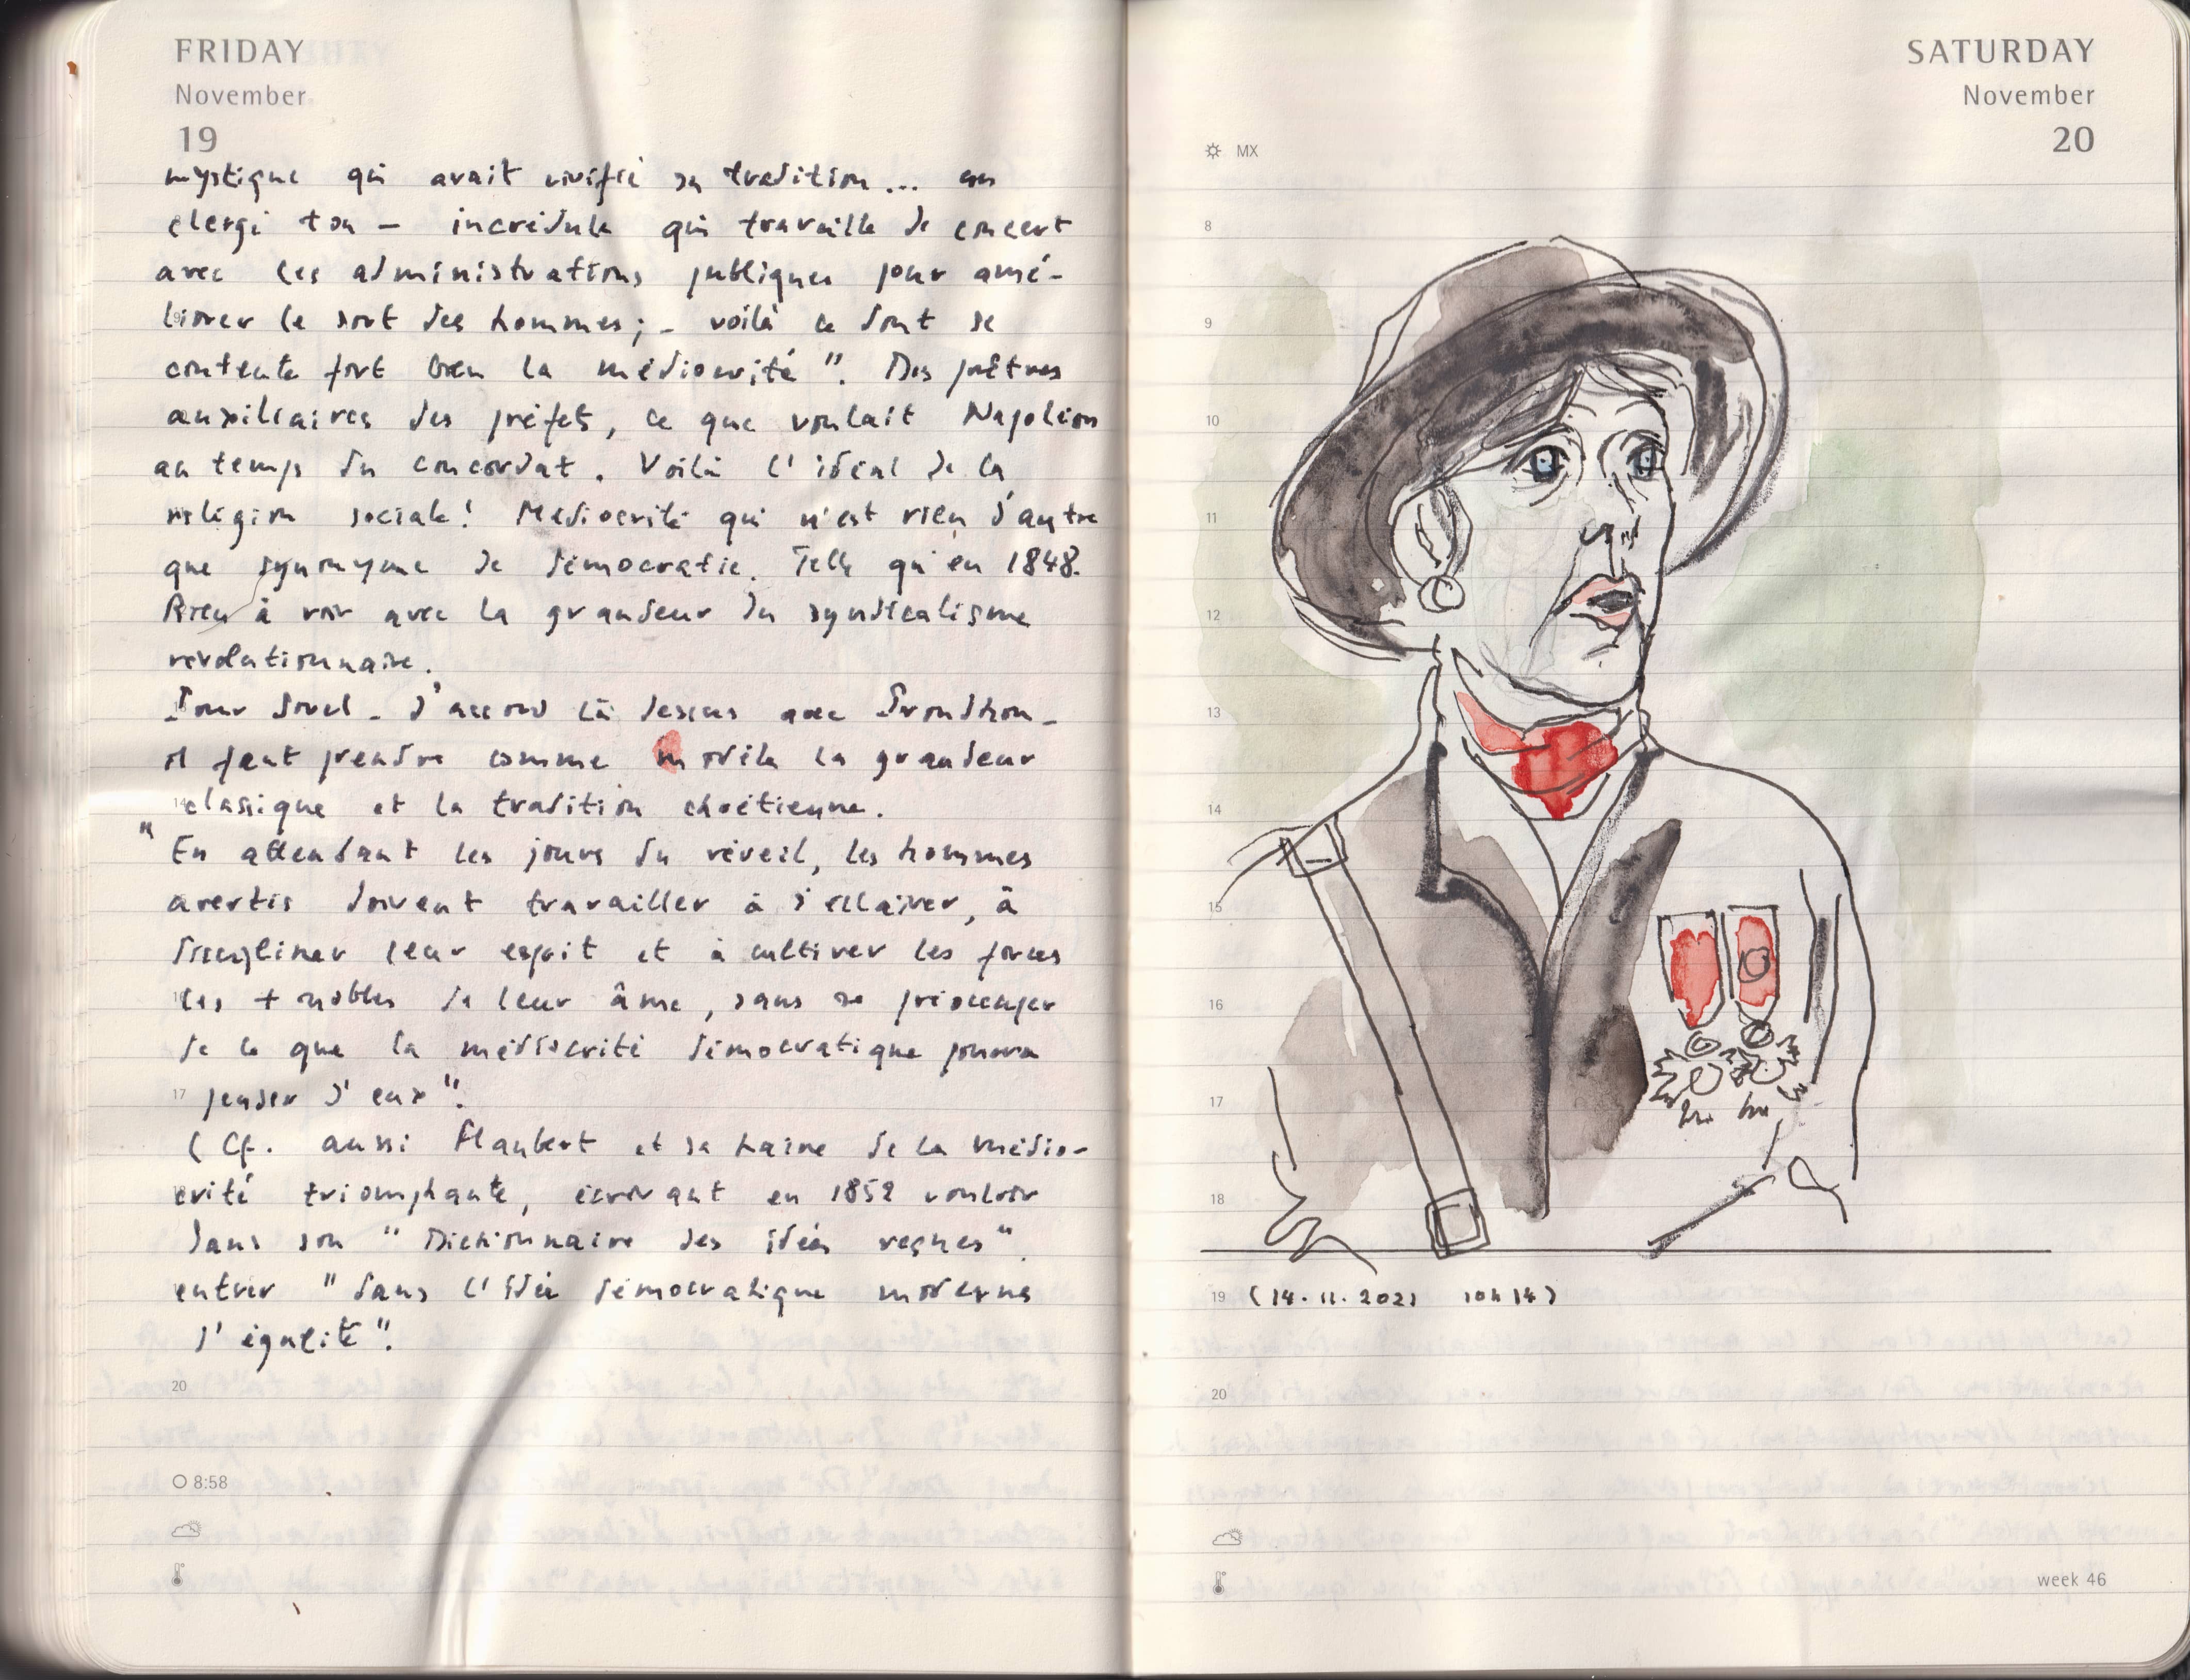 FRIDAY
November
19
mystique qui avait vivifié sa tradition... un
clergé + ou - incrédule qui travaille de concert
avec les administrations publiques pour amé-
liorer le sort des hommes ; - voilà ce dont se
contente fort bien la médiocrité". Des prêtres
auxiliaires des préfets, ce que voulait Napoléon
au temps du concordat. Voilà l'idéal de la
religion sociale! Médiocrité qui n'est rien d'autre
que synonyme de démocratie. Telle qu'en 1848.
Rien à voir avec la grandeur du syndicalisme
révolutionnaire.
Pour Sorel - d'accord là dessus avec Proudhon -
il faut prendre comme modèle la grandeur
classique et la tradition chrétienne.
"En attendant les jours du réveil, les hommes
avertis doivent travailler à s'éclairer, à
discipliner leur esprit et à cultiver les forces
les + nobles de leur âme, sans se préoccuper
de ce que la médiocrité démocratique pourra
17 penser d'eux".
(Cf. aussi Flaubert et sa haine de la médio-
crité triomphante, écrivant en 1852 vouloir
dans son "Dictionnaire des idées reçues"
entrer "dans l'idée démocratique moderne
d'égalité".
20
8:58
SATURDAY
November
20
MX
8
9
10
11
12
13
14
15
16
17
18
19 (14.11.2021 10h14)
20
week 46